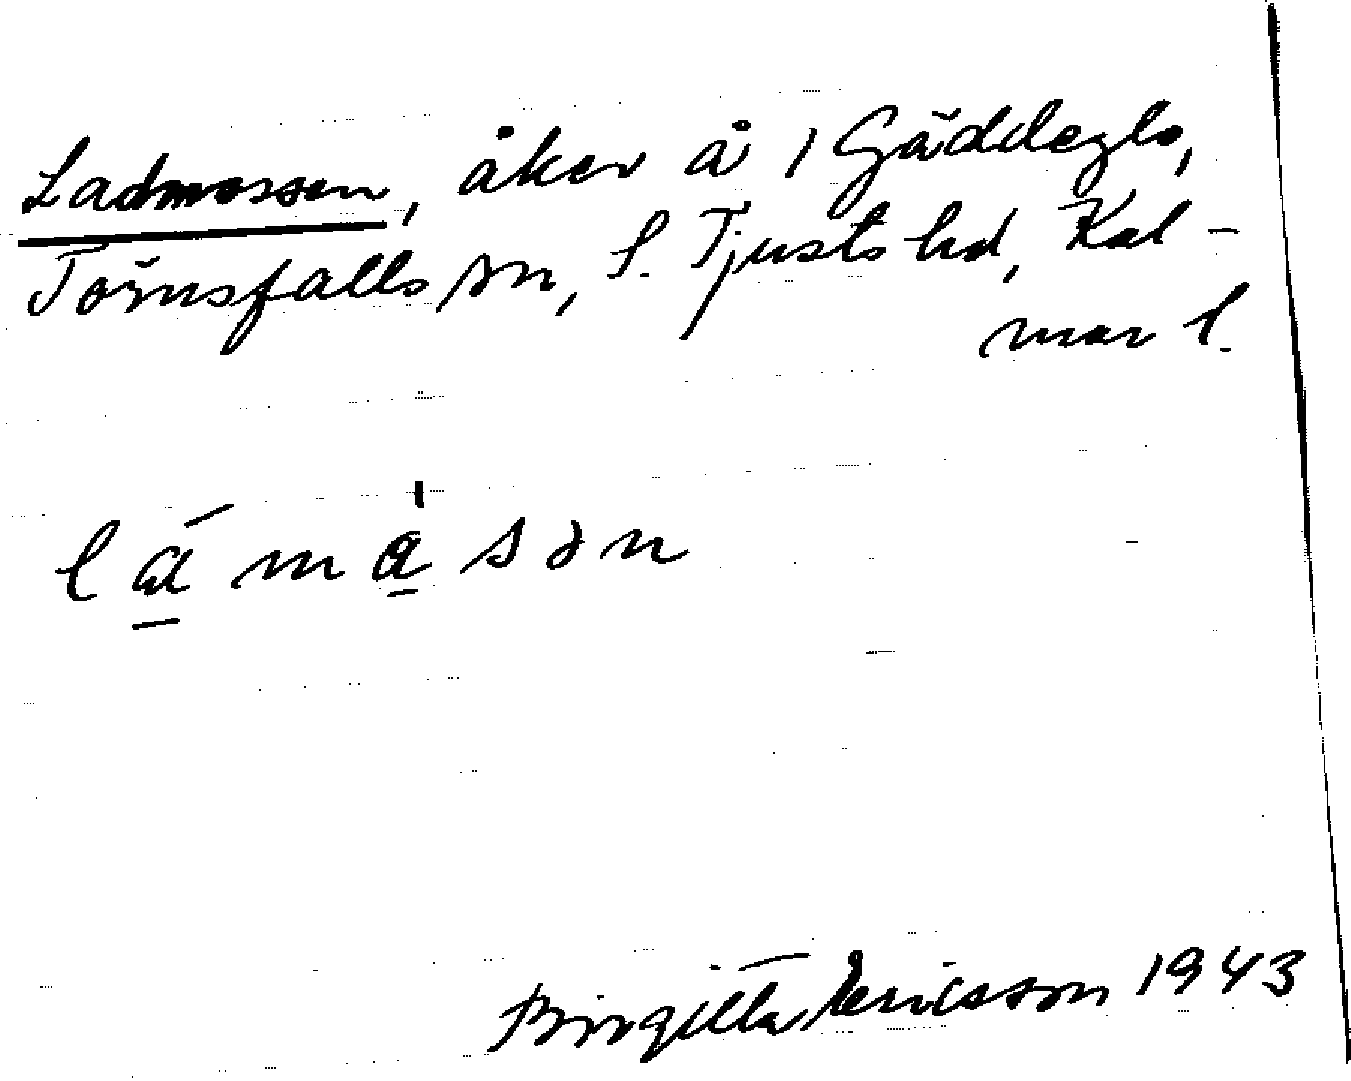 Ladmossen, åker å 1 Gäddeglo,
Törnsfalls sn, S. Tjusts hd, Kal-
mar l.
lámàsən
Birgitta Ericsson 1943